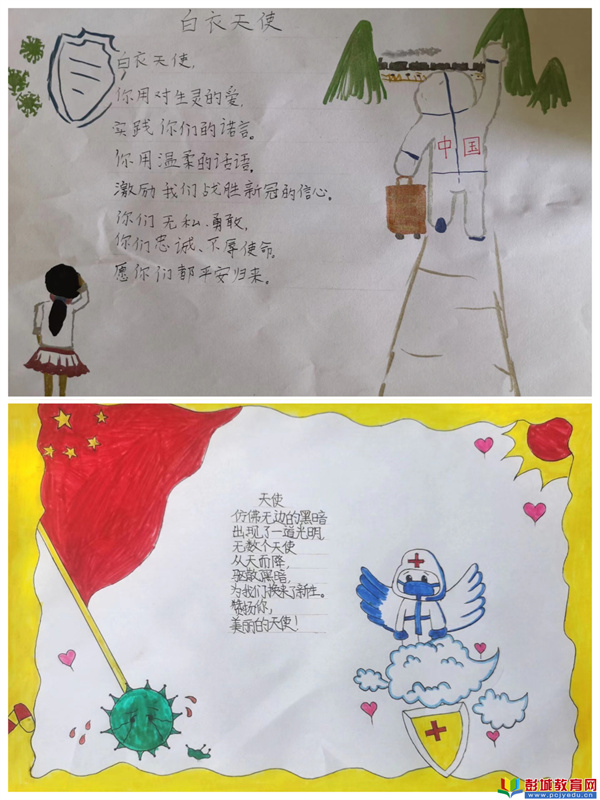 白衣天使
白衣天使,
你用对生灵的爱,
实践你们的诺言。
你用温柔的话语。
激励我们战胜新冠的信心。
你们无私、勇敢,
你们忠诚、不辱使命。
愿你们都平安归来。
中国
天使
仿佛无边的黑暗
出现了一道光明,
无数个天使
从天而降,
驱散黑暗,
为我们换来了新生。
赞扬你,
美丽的天使!
彭城教育网
www.pcjyedu.cn